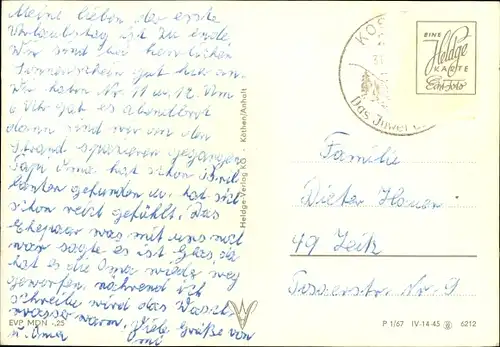 Meine lieben der erste
Urlaubstag ist zu ende
Wir sind bei herrlichen
Sonnenschein gut hier an.
Wir haben Nr. 11 u. 12. Um
6 Uhr gab es Abendbrot
dann sind wir an den
Strand spazieren gegangen
Oma hat schon
gefunden u. hat sich
schon reich gefühlt. Das
Ehepaar was mit uns
war sagte es ist Glas da
hat es die Oma wieder weg
geworfen. während ich
schreibe wird das Wasch
wasser warm. Viele Grüße von
u. Oma
EVP MDN -,25
Heldge-Verlag KG Köthen/Anhalt
KOS
Das Juwel
EINE
Heldge
KARTE
Echt Foto
Familie
Dieter
49 Zeitz
Nr. 9
P 1/67 IV-14-45 6212